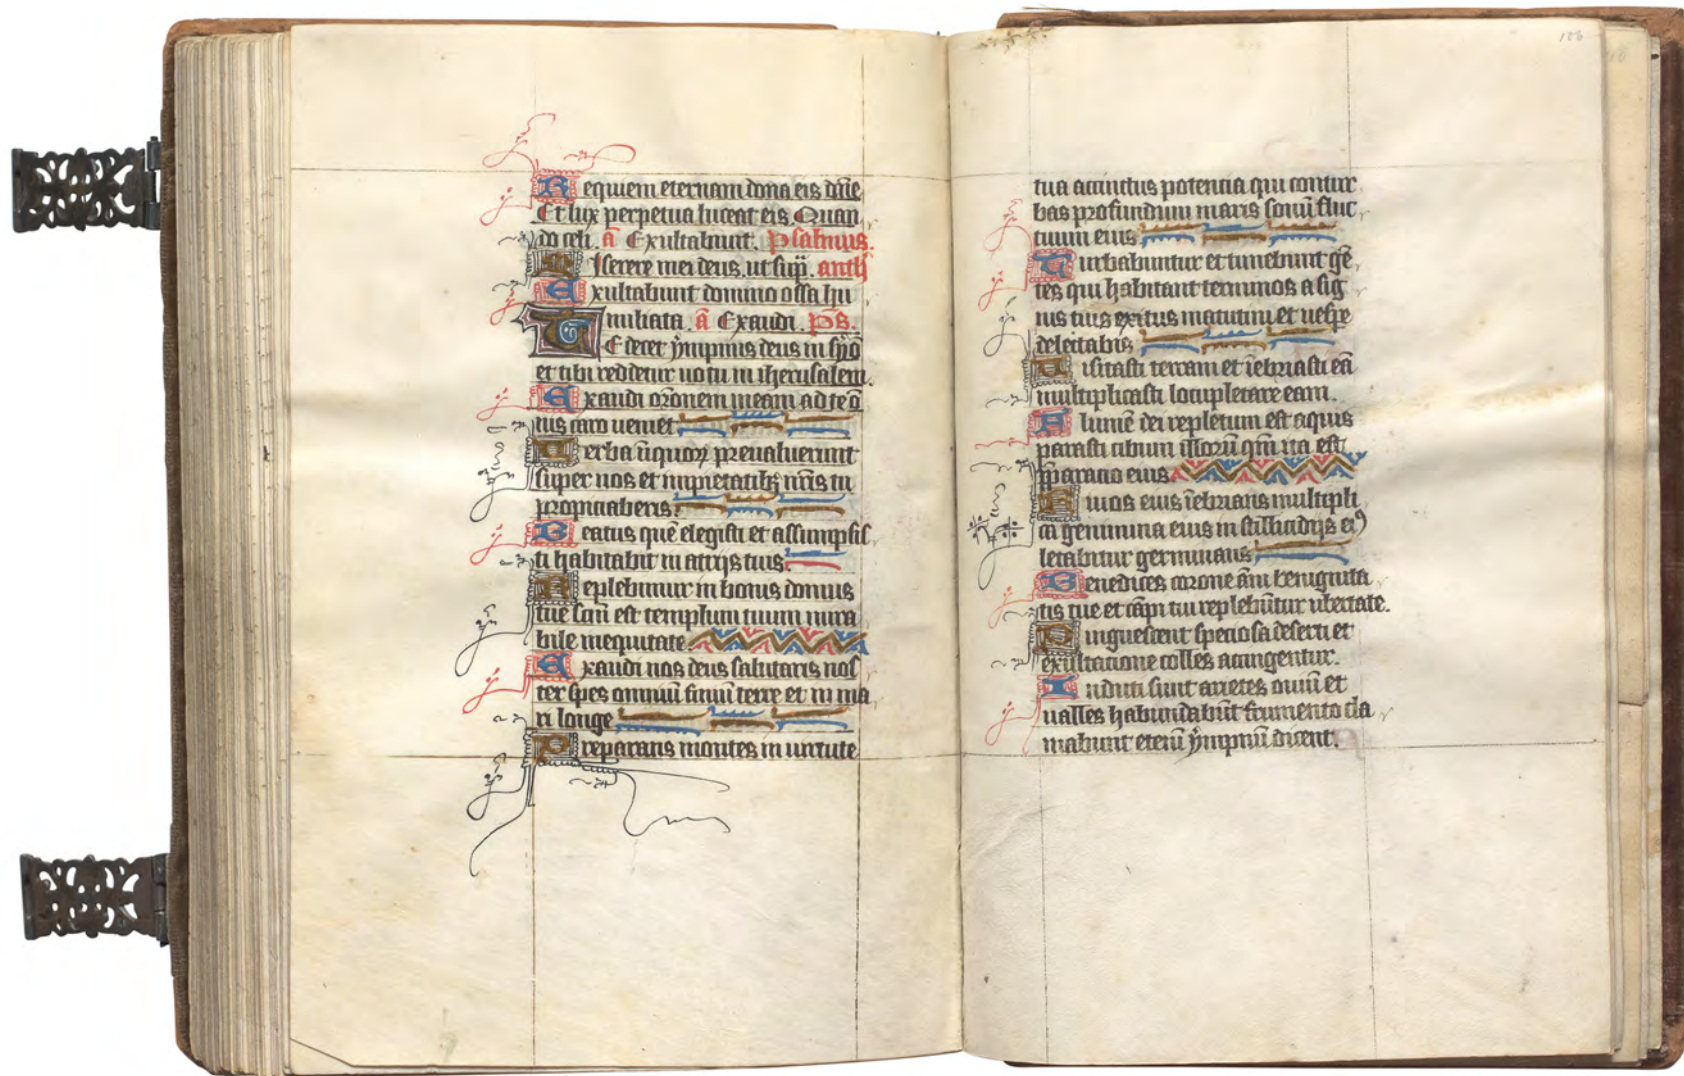 Requiem eternam dona eis dn̄e
Et lux perpetua luceat eis. Quan
do celi. a᷎ Exultabunt. Psalmus.
Miserere mei deus. ut sup̄. anth̄
Exultabunt domino ossa hu
miliata. ā Exaudi. p̄s.
Te decet ẏmpnus deus in syō
et tibi reddetur uotū in iherusalem.
Exaudi or̄onem meam ad te ō
nis caro ueniet
Uerba iniquoꝝ preualuerunt
super nos et impietatibꝫ nr̄is tu
propiciaberis.
Beatus quē elegisti et assumpsis
ti habitabit in atrijs tuis.
Replebimur in bonis domus
tue sc̄m est templum tuum mira
bile in equitate.
Exaudi nos deus salutaris nos
ter spes omniū finiū terre et in ma
ri longe
Preparans montes in uirtute
106
tua accinctus potencia qui contur
bas profundum maris sonū fluc
tuum eius
Turbabuntur et timebunt gē
tes qui habitant terminos a sig
nis tuis exitus matutini et uesp̄e
delectabis
Uisitasti terram et īebriasti eā
multiplicasti locupletare eam.
Flumē dei repletum est aquis
parasti cibum illorū qm̄ ita est
p̄paracio eius
Riuos eius īebrians multipli
ca genimina eius in stillicidijs ei⁹
letabitur germinans
Benedices corone āni benignita
tis tue et cāpi tui replebūtur ubertate.
Pinguescent speciosa deserti et
exultacione colles accingentur.
Induti sunt arietes ouiū et
ualles habundabūt frumento cla
mabunt eteni ẏmpnū dicent.